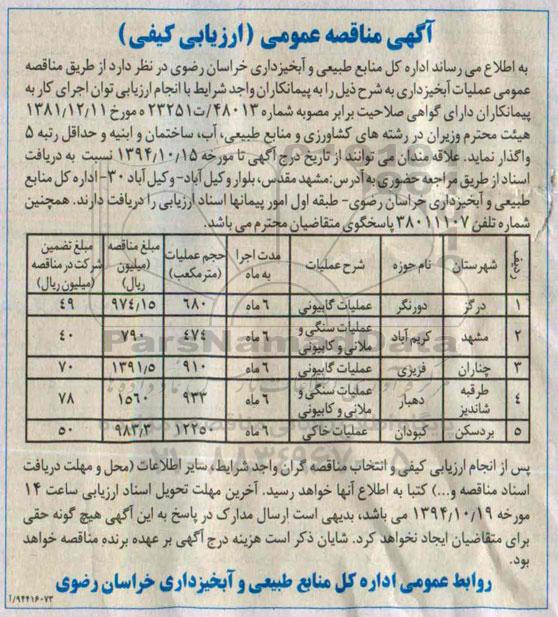 آگهی مناقصه عمومی (ارزیابی کیفی)
به اطلاع می رساند اداره کل منابع طبیعی و آبخیزداری خراسان رضوی در نظر دارد از طریق مناقصه
عمومی عملیات آبخیزداری به شرح ذیل را به پیمانکاران واجد شرایط با انجام ارزیابی توان اجرای کار به
پیمانکاران دارای گواهی صلاحیت برابر مصوبه شماره ۴۸۰۱۳/ت۲۳۲۵۱ ه مورخ ۱۳۸۱/۱۲/۱۱
هیئت محترم وزیران در رشته های کشاورزی و منابع طبیعی، آب، ساختمان و ابنیه و حداقل رتبه ۵
واگذار نماید. علاقه مندان می توانند از تاریخ درج آگهی تا مورخه ۱۳۹۴/۱۰/۱۵ نسبت به دریافت
اسناد از طریق مراجعه حضوری به آدرس: مشهد مقدس، بلوار وکیل آباد- وکیل آباد ۳۰- اداره کل منابع
طبیعی و آبخیزداری خراسان رضوی- طبقه اول امور پیمانها اسناد ارزیابی را دریافت دارند. همچنین
شماره تلفن ۳۸۰۱۱۱۰۷ پاسخگوی متقاضیان محترم می باشد.
ردیف شهرستان نام حوزه شرح عملیات مدت اجرا به ماه حجم عملیات (مترمکعب) مبلغ مناقصه (میلیون ریال) مبلغ تضمین شرکت در مناقصه (میلیون ریال)
۱ درگز دورنگر عملیات گابیونی ۶ ماه ۶۸۰ ۹۷۴/۱۵ ۴۹
۲ مشهد کریم آباد عملیات سنگی و ملاتی و گابیونی ۶ ماه ۴۷۴ ۷۹۰ ۴۰
۳ چناران فریزی عملیات گابیونی ۶ ماه ۹۱۰ ۱۳۹۱/۵ ۷۰
۴ طرقبه شاندیز دهبار عملیات سنگی و ملاتی و گابیونی ۶ ماه ۹۳۳ ۱۵۶۰ ۷۸
۵ بردسکن کبودان عملیات خاکی ۶ ماه ۱۲۲۵۰ ۹۸۳,۳ ۵۰
پس از انجام ارزیابی کیفی و انتخاب مناقصه گران واجد شرایط، سایر اطلاعات (محل و مهلت دریافت
اسناد مناقصه و...) کتبا به اطلاع آنها خواهد رسید. آخرین مهلت تحویل اسناد ارزیابی ساعت ۱۴
مورخه ۱۳۹۴/۱۰/۱۹ می باشد، بدیهی است ارسال مدارک در پاسخ به این آگهی هیچ گونه حقی
برای متقاضیان ایجاد نخواهد کرد. شایان ذکر است هزینه درج آگهی بر عهده برنده مناقصه خواهد
بود.
روابط عمومی اداره کل منابع طبیعی و آبخیزداری خراسان رضوی
۹۴۴۱۶۰۷۳/آ
ParsNamadData